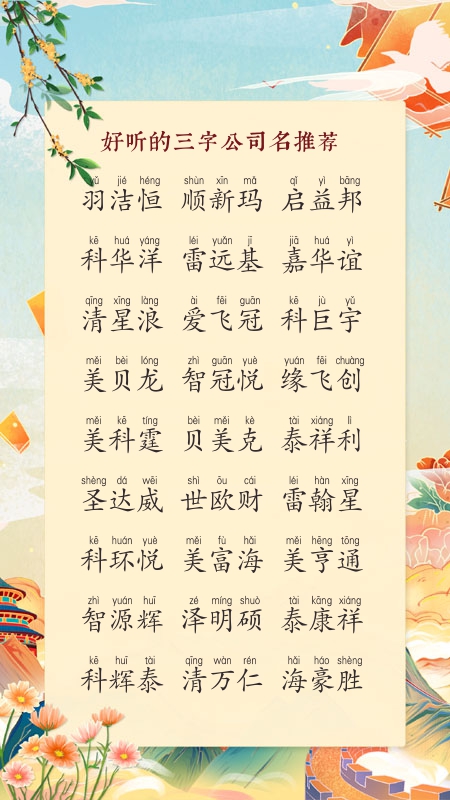 好听的三字公司名推荐
yǔ jié héng shùn xīn mǎ qǐ yì bāng
羽洁恒 顺新玛 启益邦
kē huá yáng léi yuǎn jī jiā huá yì
科华洋 雷远基 嘉华谊
qīng xīng làng ài fēi guān kē jù yǔ
清星浪 爱飞冠 科巨宇
měi bèi lóng zhì guān yuè yuán fēi chuàng
美贝龙 智冠悦 缘飞创
měi kē tíng bèi měi kè tài xiáng lì
美科霆 贝美克 泰祥利
shèng dá wēi shì ōu cái léi hàn xīng
圣达威 世欧财 雷翰星
kē huán yuè měi fù hǎi měi hēng tōng
科环悦 美富海 美亨通
zhì yuán huī zé míng shuò tài kāng xiáng
智源辉 泽明硕 泰康祥
kē huī tài qīng wàn rén hǎi háo shèng
科辉泰 清万仁 海豪胜